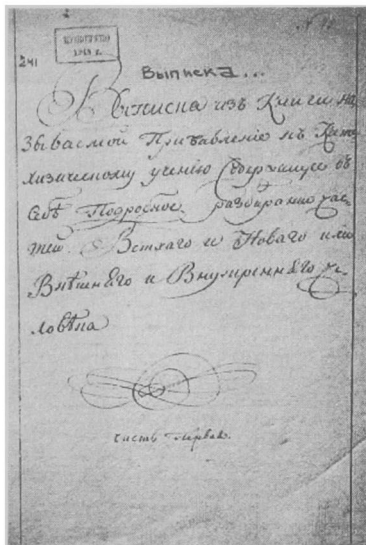 241
Выписка...
Выписка изъ Книги на
зываемой Прибавленіе къ Кати
хизическому ученію Содержащее въ
Себѣ Подробное разбирание час
тей Ветхаго и Новаго или
Внѣшнѣго и Внутреннѣго че
ловѣка
часть первая.